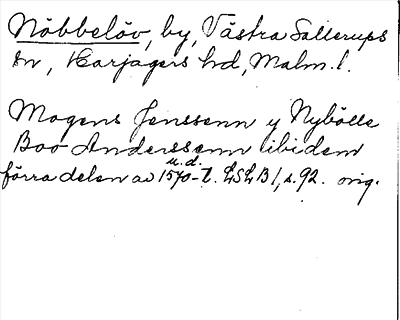 Nöbbelöv, by, Västra Sallerups
sn, Harjagers hd, Malm. l.
Mogens Jenssenn y Nybölle
Boo Anderssenn ibidem
u. d.
förra delen av 1570-t. LSLB 1, s. 92. orig.